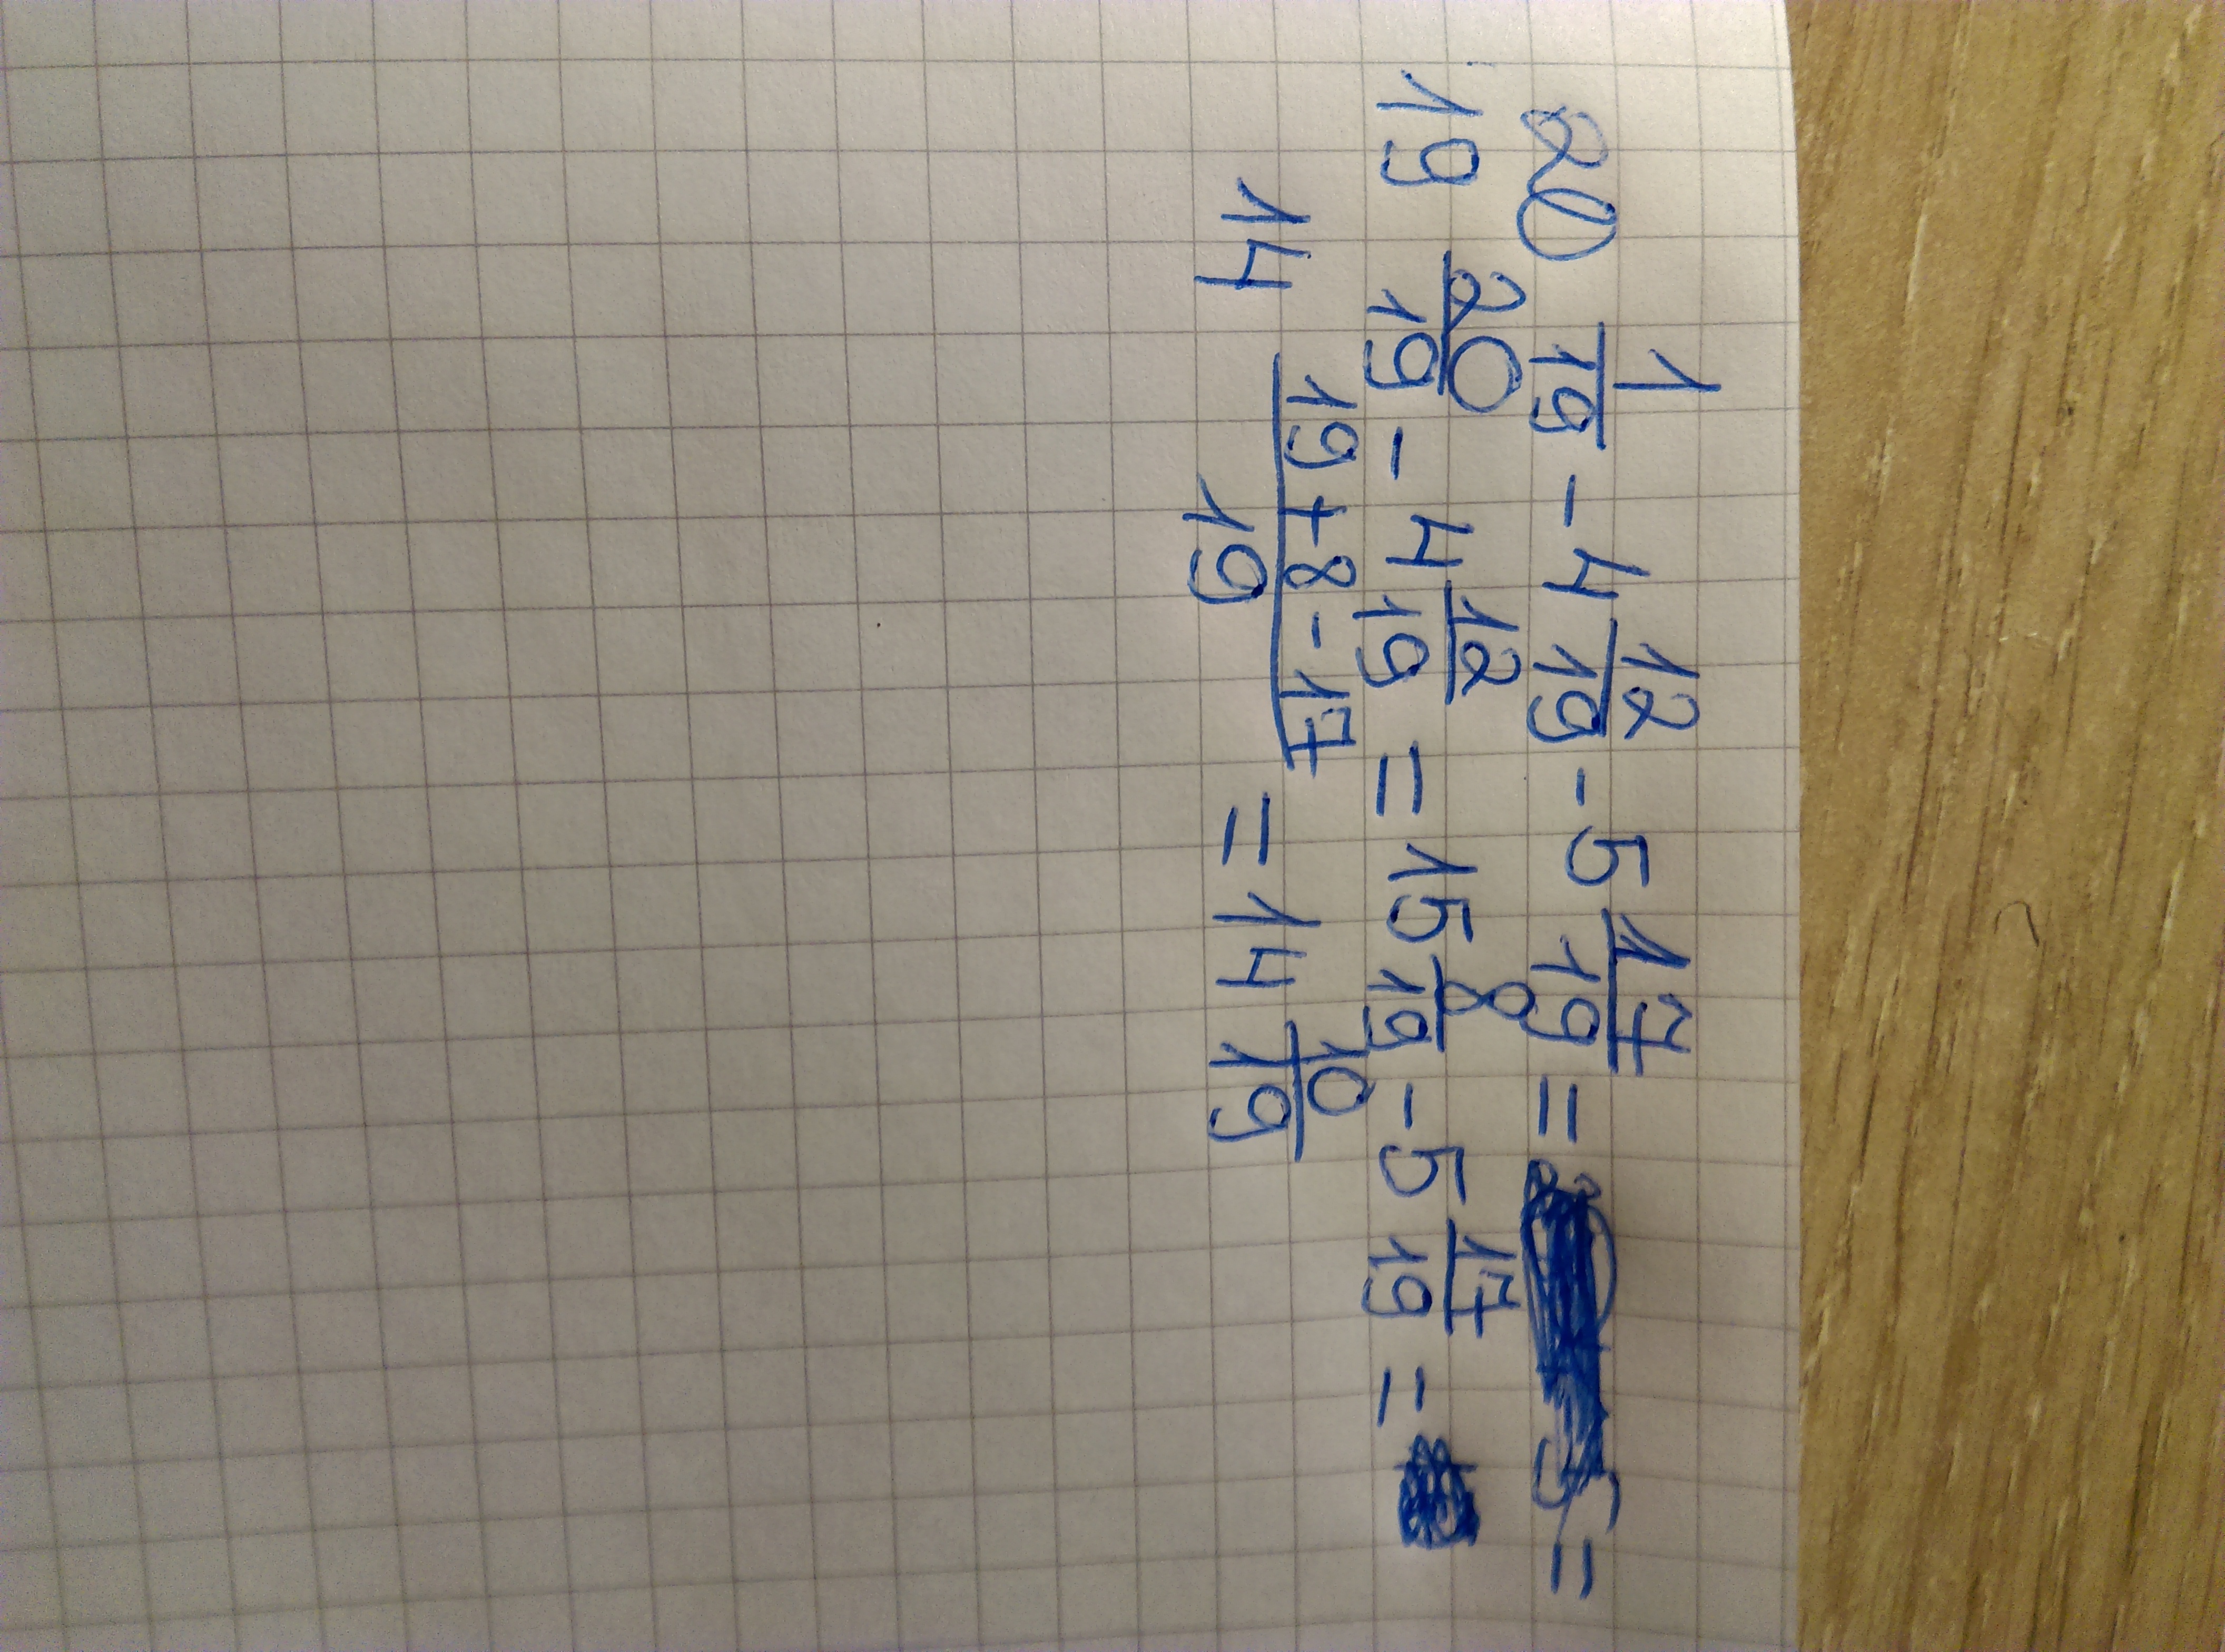 20 1/19 - 4 12/19 - 5 17/19 = =
19 20/19 - 4 12/19 = 15 8/19 - 5 17/19 =
14 19+8-17/19 = 14 10/19